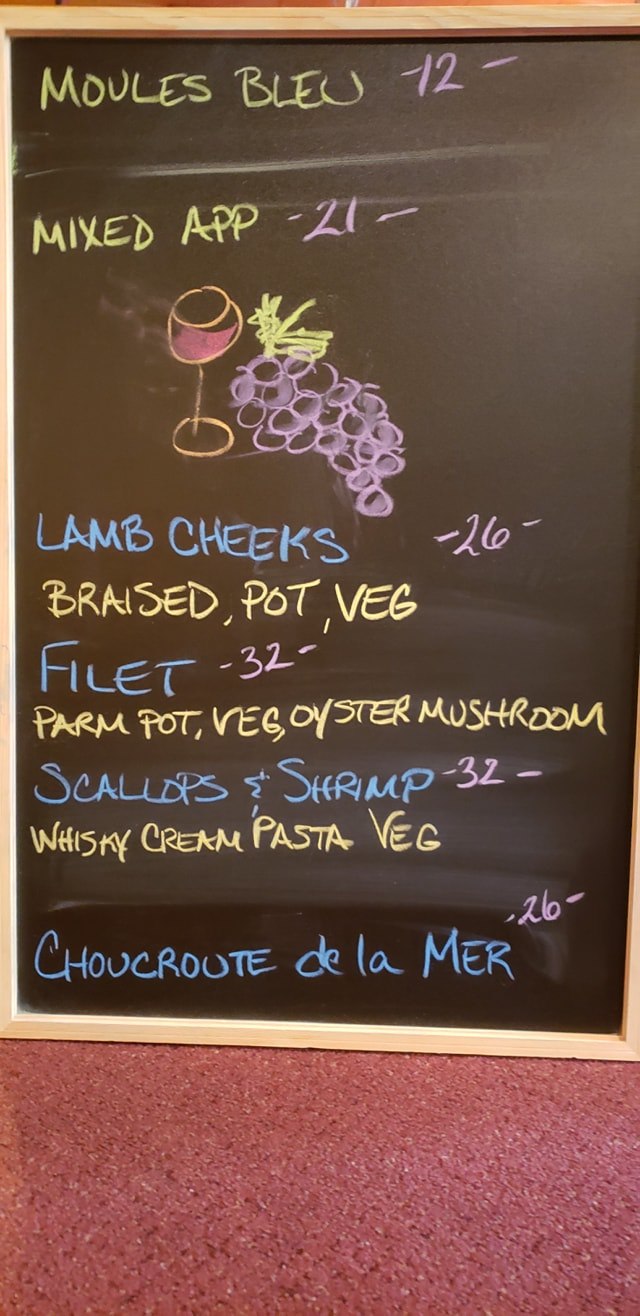 MOULES BLEU -12-
MIXED APP -21-
LAMB CHEEKS -26-
BRAISED, POT, VEG
FILET -32-
PARM POT, VEG, OYSTER MUSHROOM
SCALLOPS & SHRIMP -32-
WHISKY CREAM PASTA VEG
-26-
CHOUCROUTE de la MER